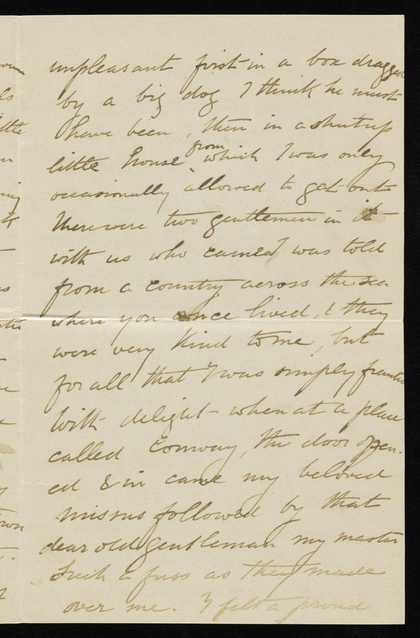 unpleasant first in a box dragged
by a big dog I think he must
have been, then in a shut up
little house from which I was only
occasionally allowed to get out
There were two gentlemen in it
with us who came I was told
from a country across the sea
where you once lived, & they
were very kind to me, but
for all that I was simply frantic
with delight when at a place
called Conway, the door open-
ed & in came my beloved
missus followed by that
dear old gentleman my master
Such a fuss as they made
over me. I felt a proud